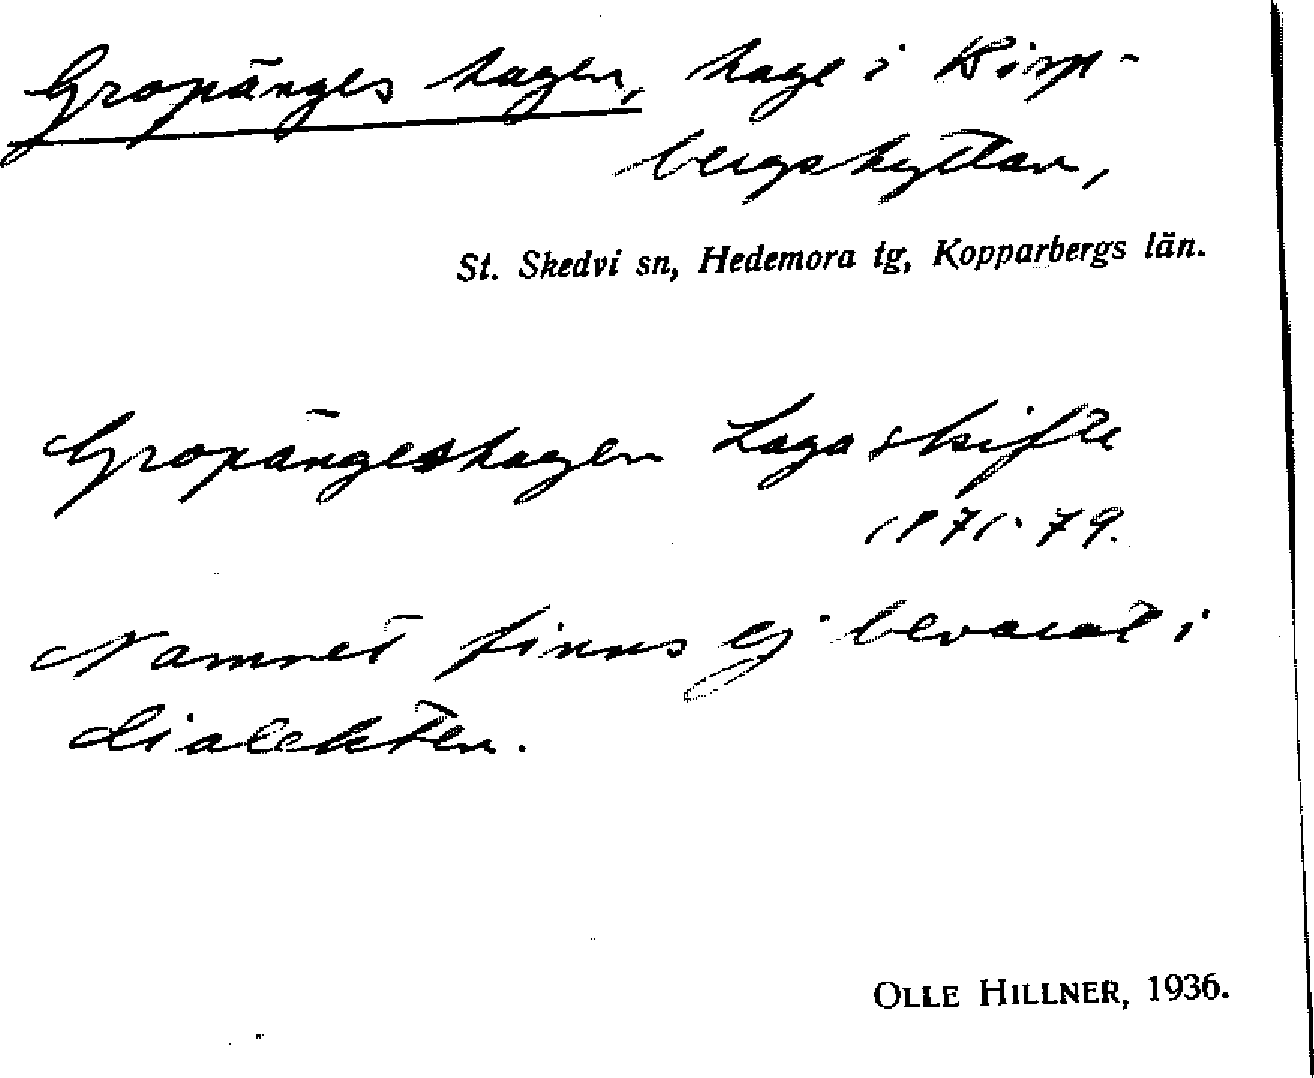 Gropänges hagen, hage i Risp-
bergshyttan,
St. Skedvi sn, Hedemora tg, Kopparbergs län.
Gropängeshagen Laga skifte
1871-79.
Namnet finns ej bevarat i
dialekten.
OLLE HILLNER, 1936.